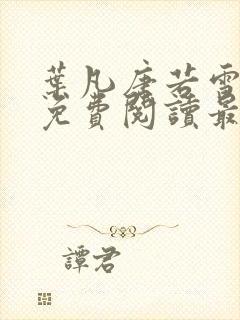 葉凡唐若雪
免費閱讀最
譚君